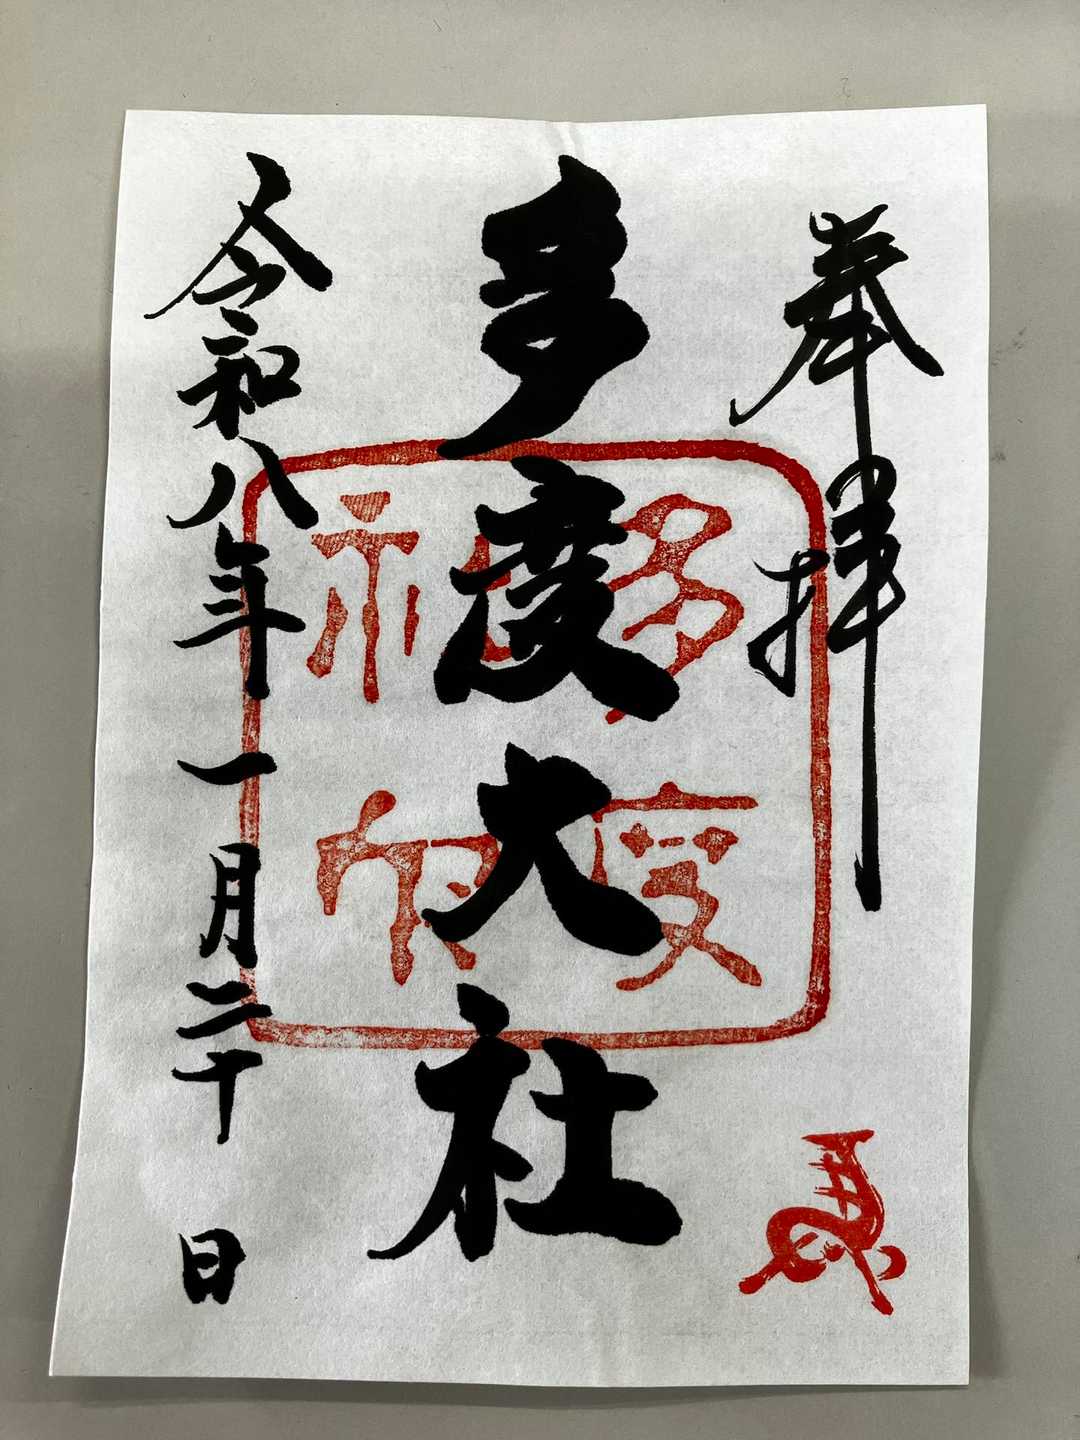 奉拝
多度大社
令和八年一月二十日
多度
神社
馬